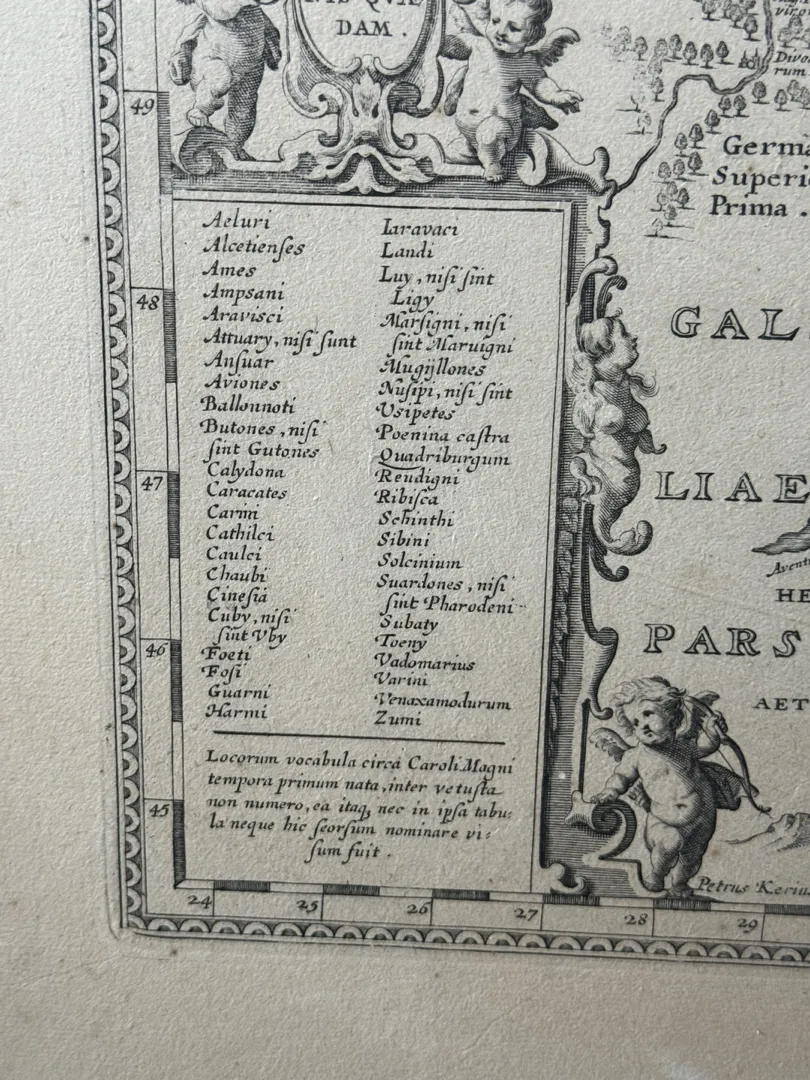 DAM .
49
Germa
Superi
Prima .
Aeluri
Alcetienſes
Ames
Ampsani
Aravisci
Attuary, niſi ſunt
Anſuar
Aviones
Ballonnoti
Butones , niſi
ſint Gutones
Calydona
Caracates
Carini
Cathilci
Caulci
Chaubi
Cinesia
Cuby, niſi
ſint Vby
Foeti
Foſi
Guarni
Harmi
Iaravaci
Landi
Luy , niſi ſint
Ligy
Marſigni , niſi
ſint Maruigni
Mugijllones
Nuſipi, niſi ſint
Vsipetes
Poenina caſtra
Quadriburgum
Reudigni
Ribiſca
Schinthi
Sibini
Solcinium
Suardones , niſi
ſint Pharodeni
Subaty
Toeny
Vadomarius
Varini
Venaxamodurum
Zumi
48
GAL
47
LIAE
Avent
HE
46
PARS
AET
Locorum vocabula circá Caroli Magni
tempora primum nata, inter vetuſta
non numero, ea itaq, nec in ipſa tabu:
la neque hic ſeorſum nominare vi:
ſum fuit .
45
Petrus Kerius
24 25 26 27 28 29